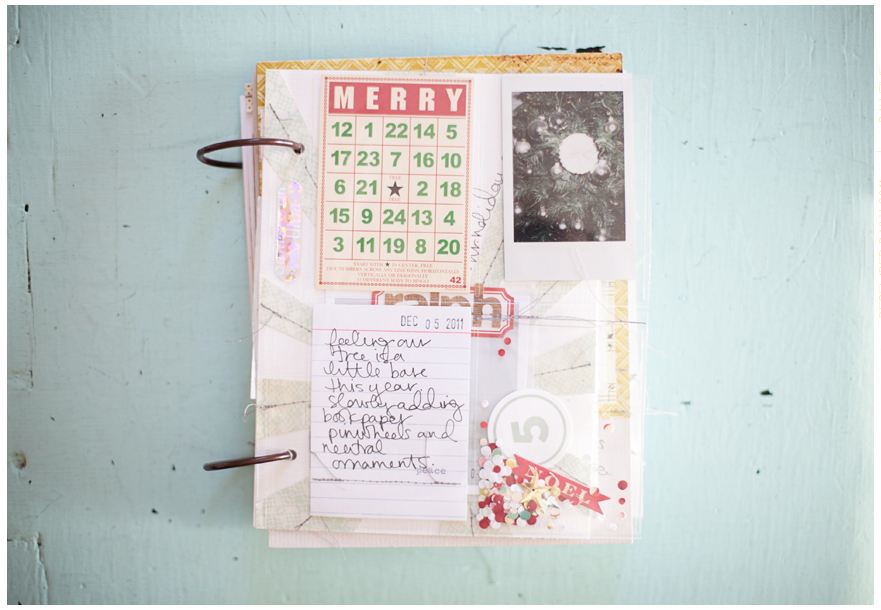 MERRY
12 1 22 14 5
17 23 7 16 10
FREE
6 21 ★ 2 18
FREE
15 9 24 13 4
3 11 19 8 20
START WITH ★ IN CENTER, FREE
VERTICALLY OR DIAGONALLY
42
holiday
ralph
DEC 05 2011
feeling our
tree is a
little bare
this year.
slowly adding
book paper
pinwheels and
neutral
ornaments.
peace
5
NOEL